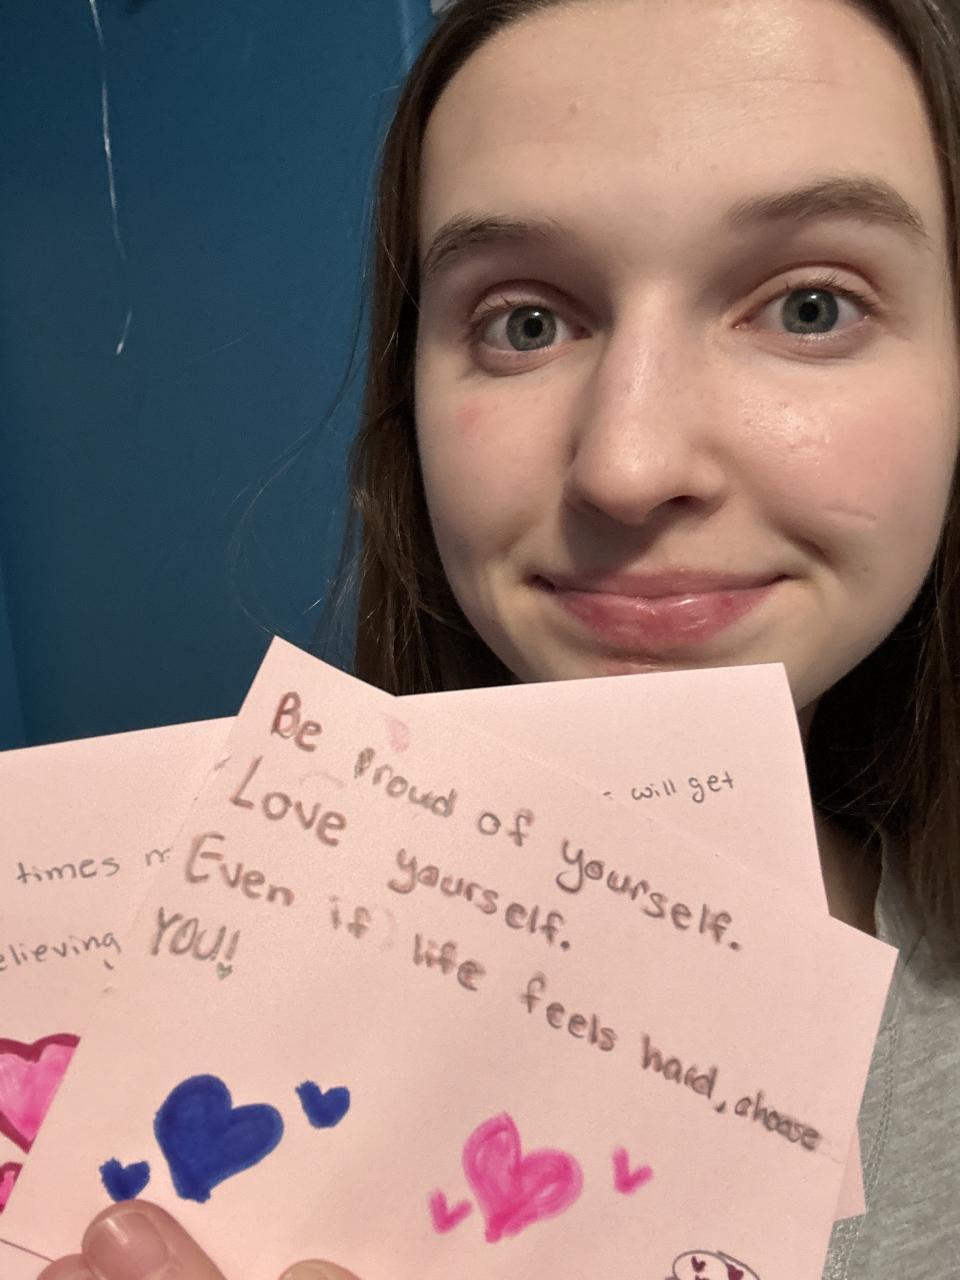 Be Proud of yourself.
Love yourself.
Even if life feels hard, choose
YOU!!
will get
times
elieving